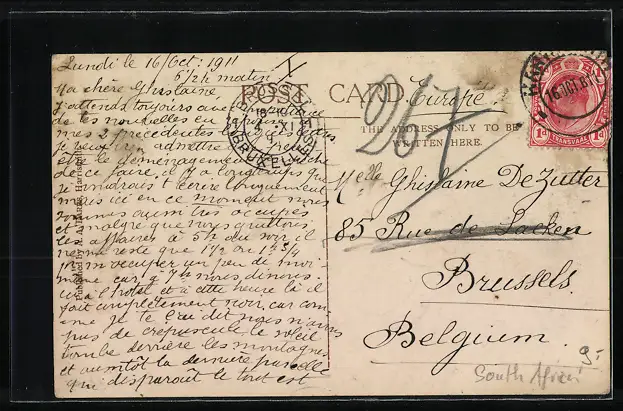 Lundi le 16/Oct: 1911
6/2h matin
Ma chère Ghislaine
J'attends toujours avec impatience
de tes nouvelles en réponse à
mes 2 précédentes
je veux bien admettre
être le déménagement
de ce faire, il y a longtemps que
je voudrais t'écrire longuement
mais ici en ce moment nous
sommes aussi très occupés
et malgré que nous quittons
les affaires à 5½ du soir il
reste que 1½ ou 1¾
pr m'occuper un peu de moi-
même car à 7½ nous dinons
à l'hotel et à cette heure là il
fait complètement noir, car com-
me je te l'ai dit nous n'avons
pas de crépuscule le soleil
tombe derrière les montagnes
et aussitôt la dernière parcelle
qui disparaît le tout est
Published by R. A. Harris, Harrismith
POST CARD
BRUSSEL
BRUXELLES
Europe
THE ADDRESS ONLY TO BE
WRITTEN HERE.
267
16 OCT
1d TRANSVAAL 1d
Melle Ghislaine De Zutter
85 Rue de Laeken
Brussels
Belgium
South Africa
9.-